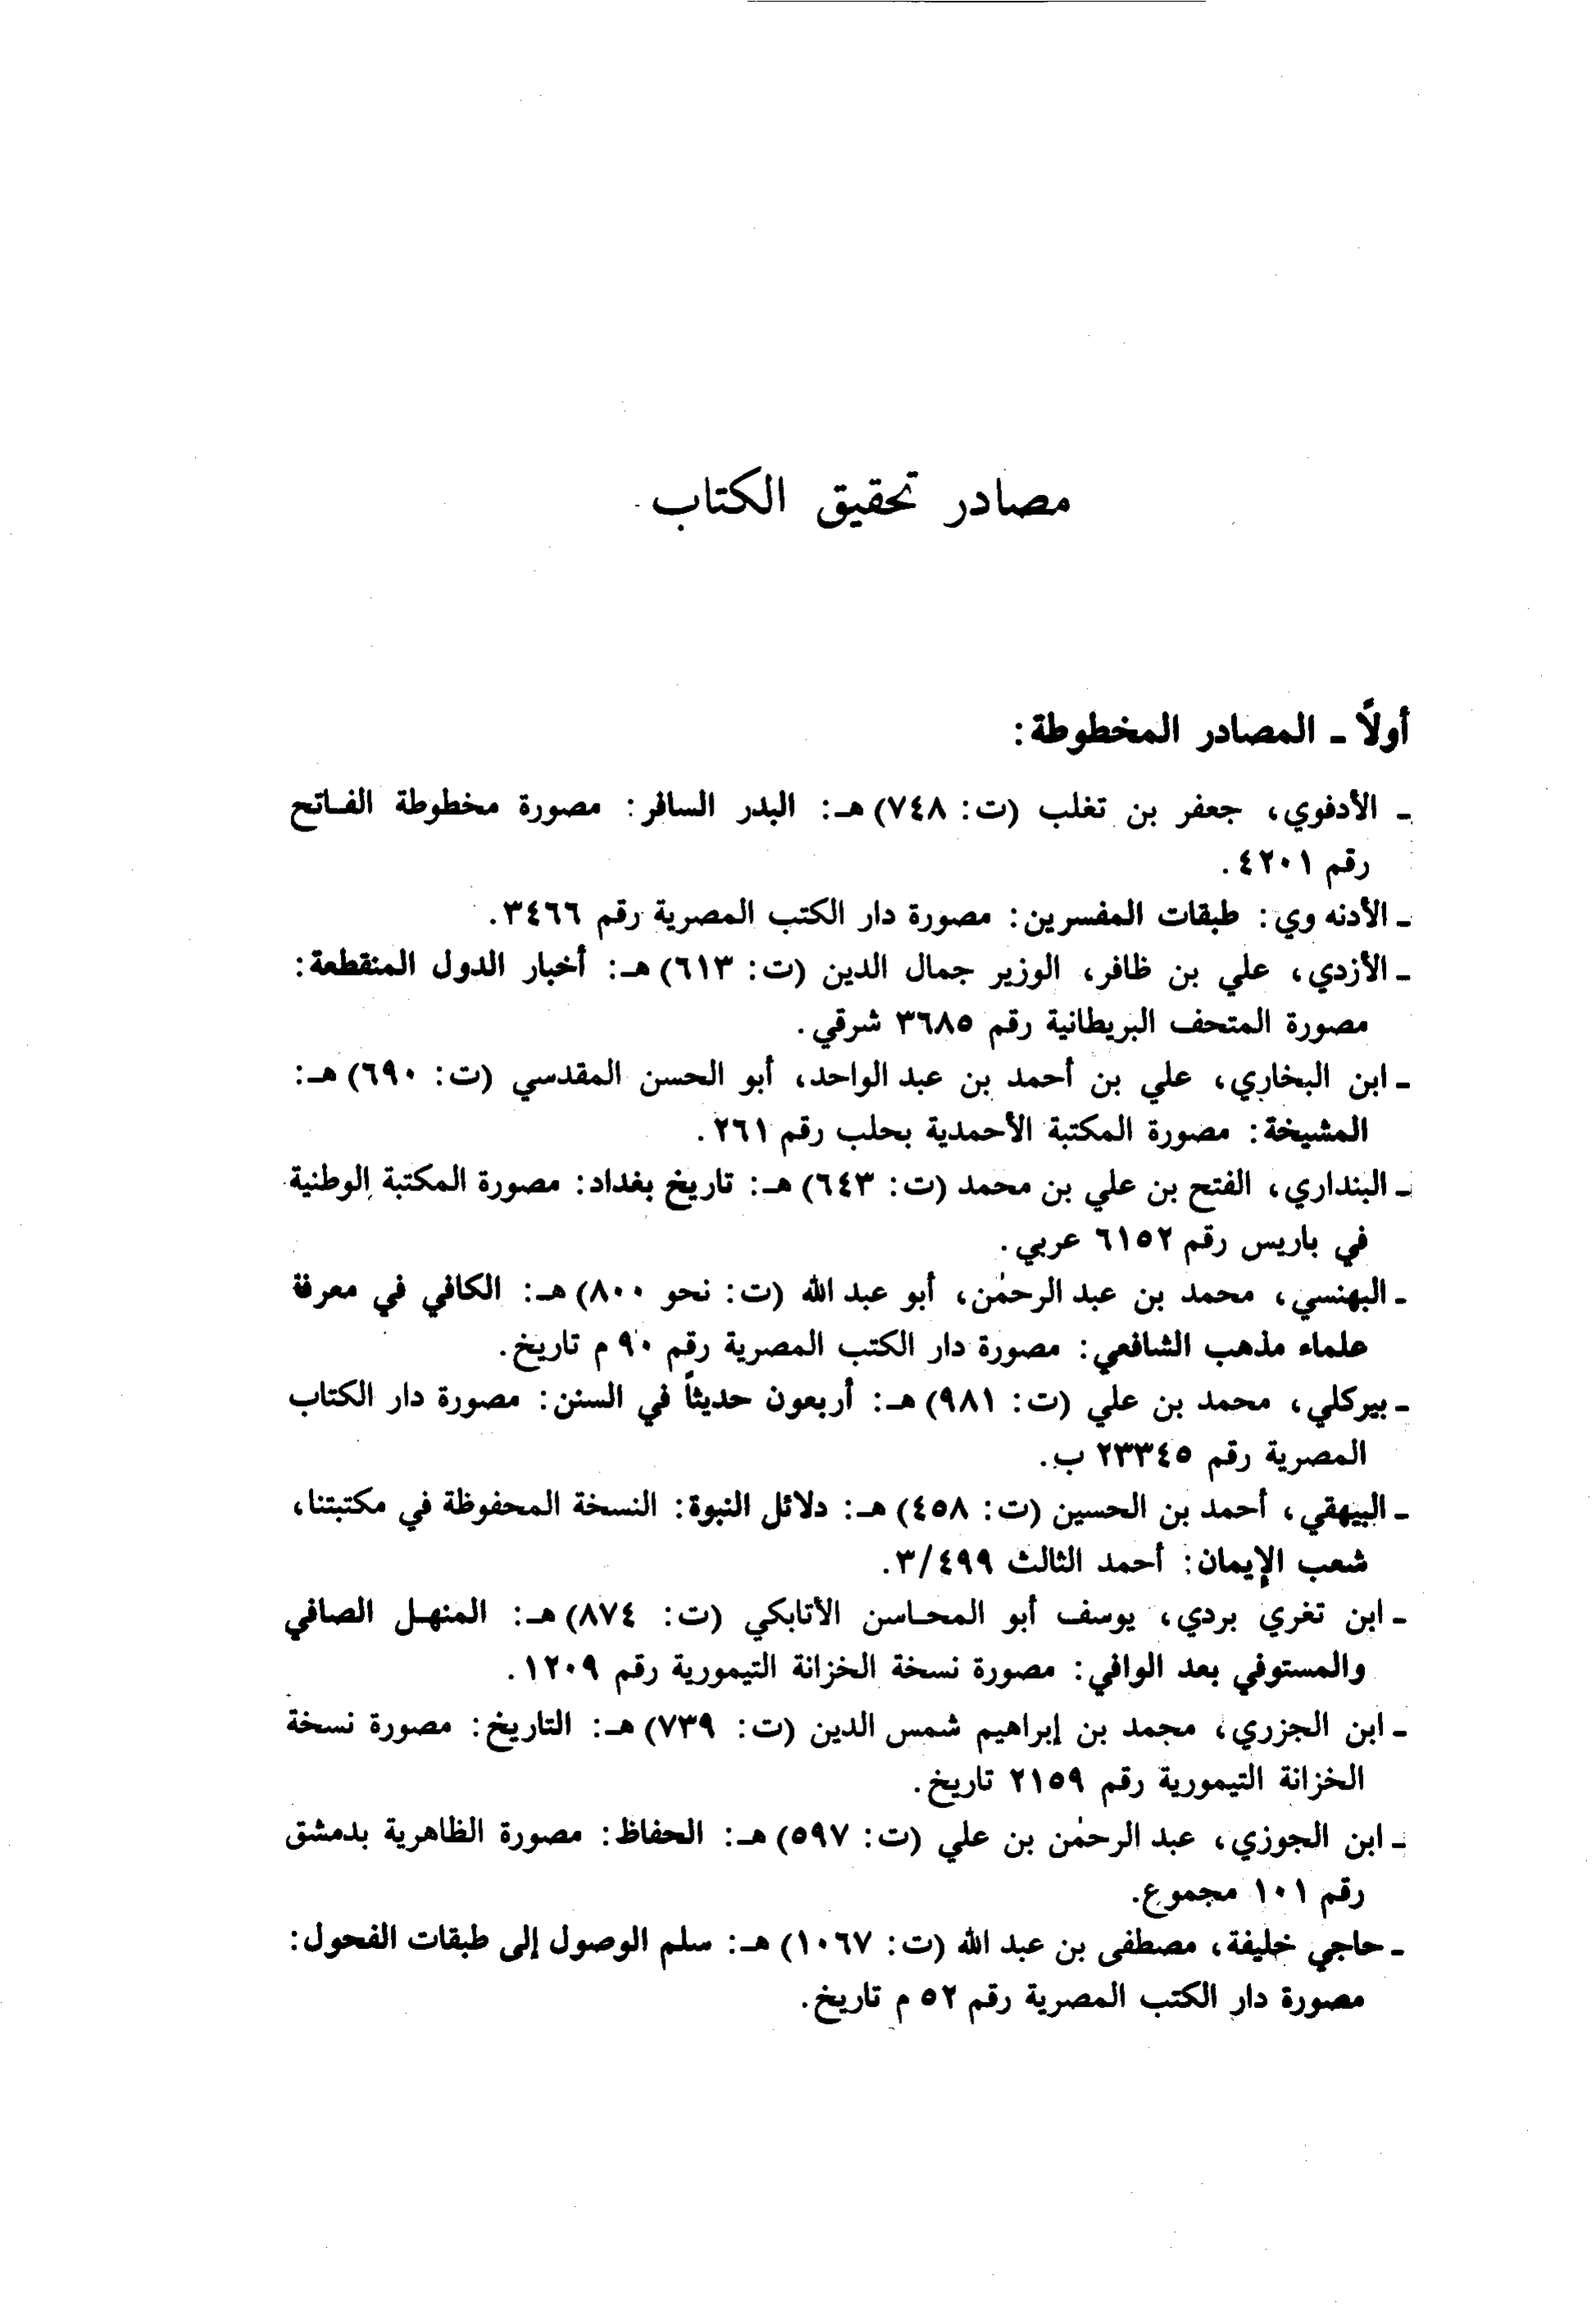 مصادر تحقيق الكتاب
أولاً - المصادر المخطوطة:
- الأدفوي، جعفر بن تغلب (ت: ٧٤٨) هـ: البدر السافر: مصورة مخطوطة الفاتح
رقم ٤٢٠١.
- الأدنه وي: طبقات المفسرين: مصورة دار الكتب المصرية رقم ٣٤٦٦.
- الأزدي، علي بن ظافر، الوزير جمال الدين (ت: ٦١٣) هـ: أخبار الدول المنقطعة:
مصورة المتحف البريطانية رقم ٣٦٨٥ شرقي.
- ابن البخاري، علي بن أحمد بن عبد الواحد، أبو الحسن المقدسي (ت: ٦٩٠) هـ:
المشيخة: مصورة المكتبة الأحمدية بحلب رقم ٢٦١.
- البنداري، الفتح بن علي بن محمد (ت: ٦٤٣) هـ: تاريخ بغداد: مصورة المكتبة الوطنية
في باريس رقم ٦١٥٢ عربي.
- البهنسي، محمد بن عبد الرحمٰن، أبو عبد الله (ت: نحو ٨٠٠) هـ: الكافي في معرفة
علماء مذهب الشافعي: مصورة دار الكتب المصرية رقم ٩٠ م تاريخ.
- بيركلي، محمد بن علي (ت: ٩٨١) هـ: أربعون حديثاً في السنن: مصورة دار الكتاب
المصرية رقم ٢٣٣٤٥ ب.
- البيهقي، أحمد بن الحسين (ت: ٤٥٨) هـ: دلائل النبوة: النسخة المحفوظة في مكتبتنا،
شعب الإيمان: أحمد الثالث ٣/٤٩٩.
- ابن تغري بردي، يوسف أبو المحاسن الأتابكي (ت: ٨٧٤) هـ: المنهل الصافي
والمستوفي بعد الوافي: مصورة نسخة الخزانة التيمورية رقم ١٢٠٩.
- ابن الجزري، محمد بن إبراهيم شمس الدين (ت: ٧٣٩) هـ: التاريخ: مصورة نسخة
الخزانة التيمورية رقم ٢١٥٩ تاريخ.
- ابن الجوزي، عبد الرحمٰن بن علي (ت: ٥٩٧) هـ: الحفاظ: مصورة الظاهرية بدمشق
رقم ١٠١ مجموع.
- حاجي خليفة، مصطفى بن عبد الله (ت: ١٠٦٧) هـ: سلم الوصول إلى طبقات الفحول:
مصورة دار الكتب المصرية رقم ٥٢ م تاريخ.